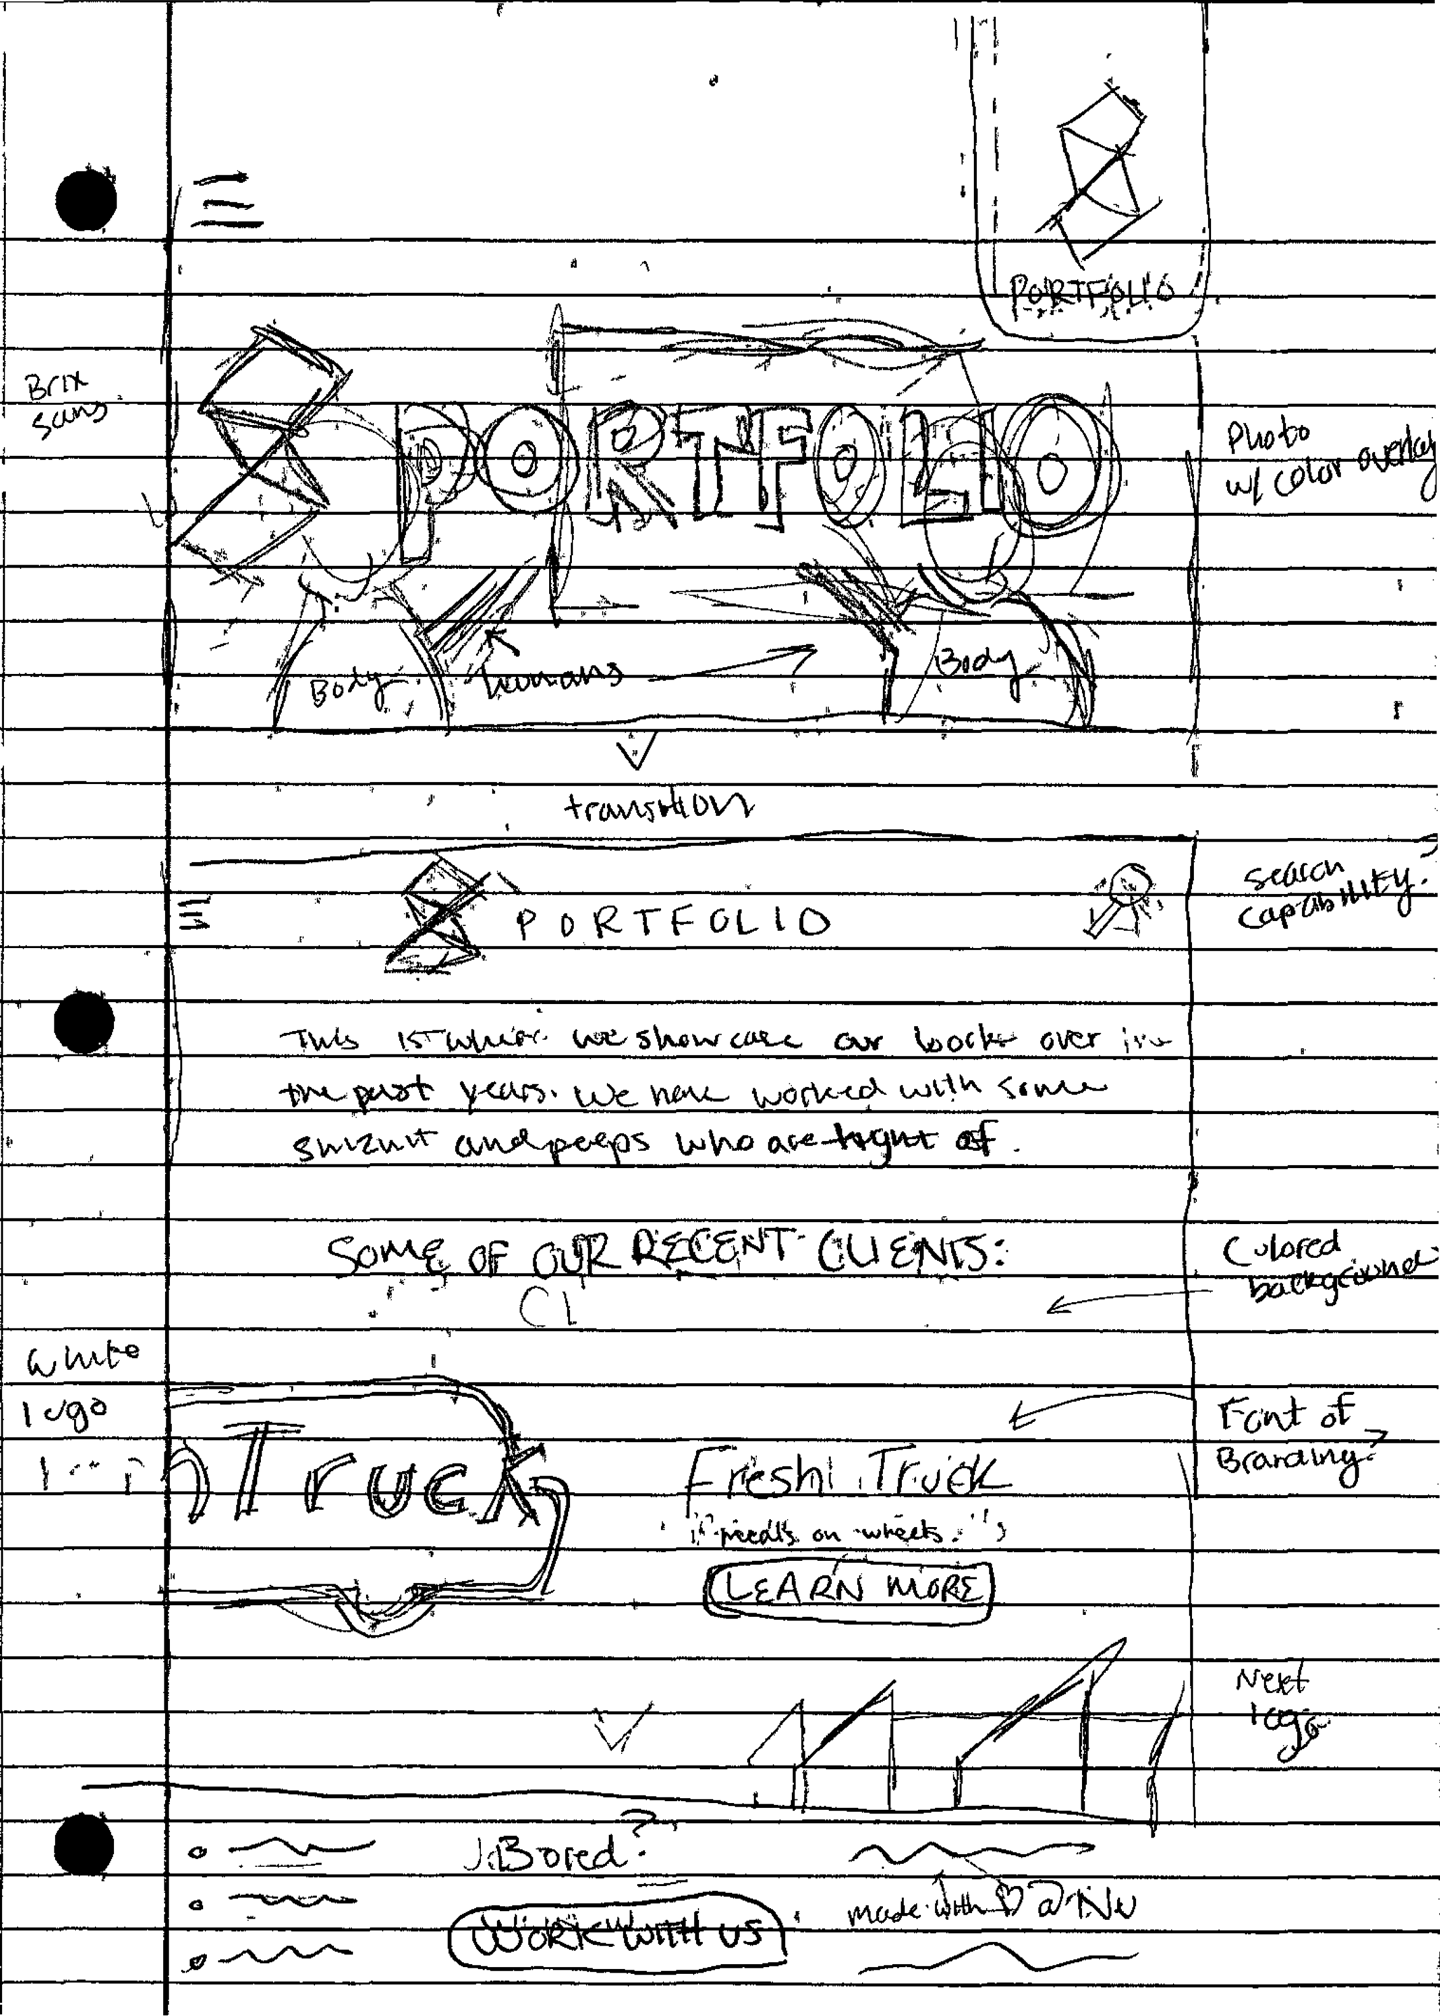 PORTFOLIO
Brix
sans
PORTFOLIO
Photo
w/ color overlay
Body
humans
Body
transition
PORTFOLIO
search
capability?
This is where we showcase our works over
the past years. We have worked with some
and peeps who are of.
SOME OF OUR RECENT CLIENTS:
CL
Colored
background
white
logo
hTruck
Font of
Branding?
Fresh Truck
"meals on wheels."
LEARN MORE
Next
logo
Bored?
made with ♡ @ NU
WORK WITH US